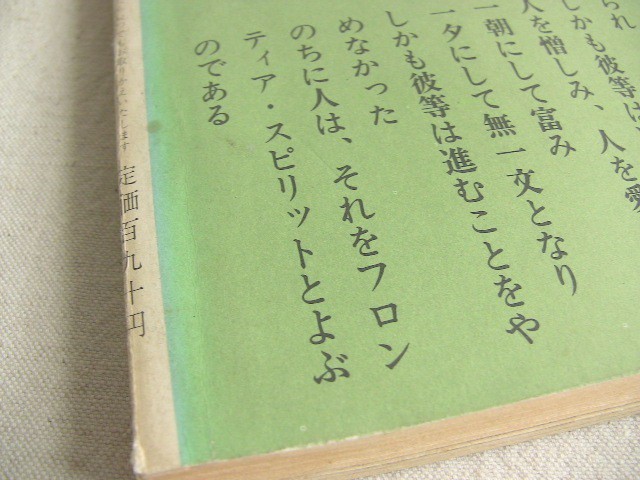 られ
しかも彼等は
人を憎しみ、人を愛
一朝にして富み
一夕にして無一文となり
しかも彼等は進むことをや
めなかった
のちに人は、それをフロン
ティア・スピリットとよぶ
のである
取りかえいたします
定価百九十円